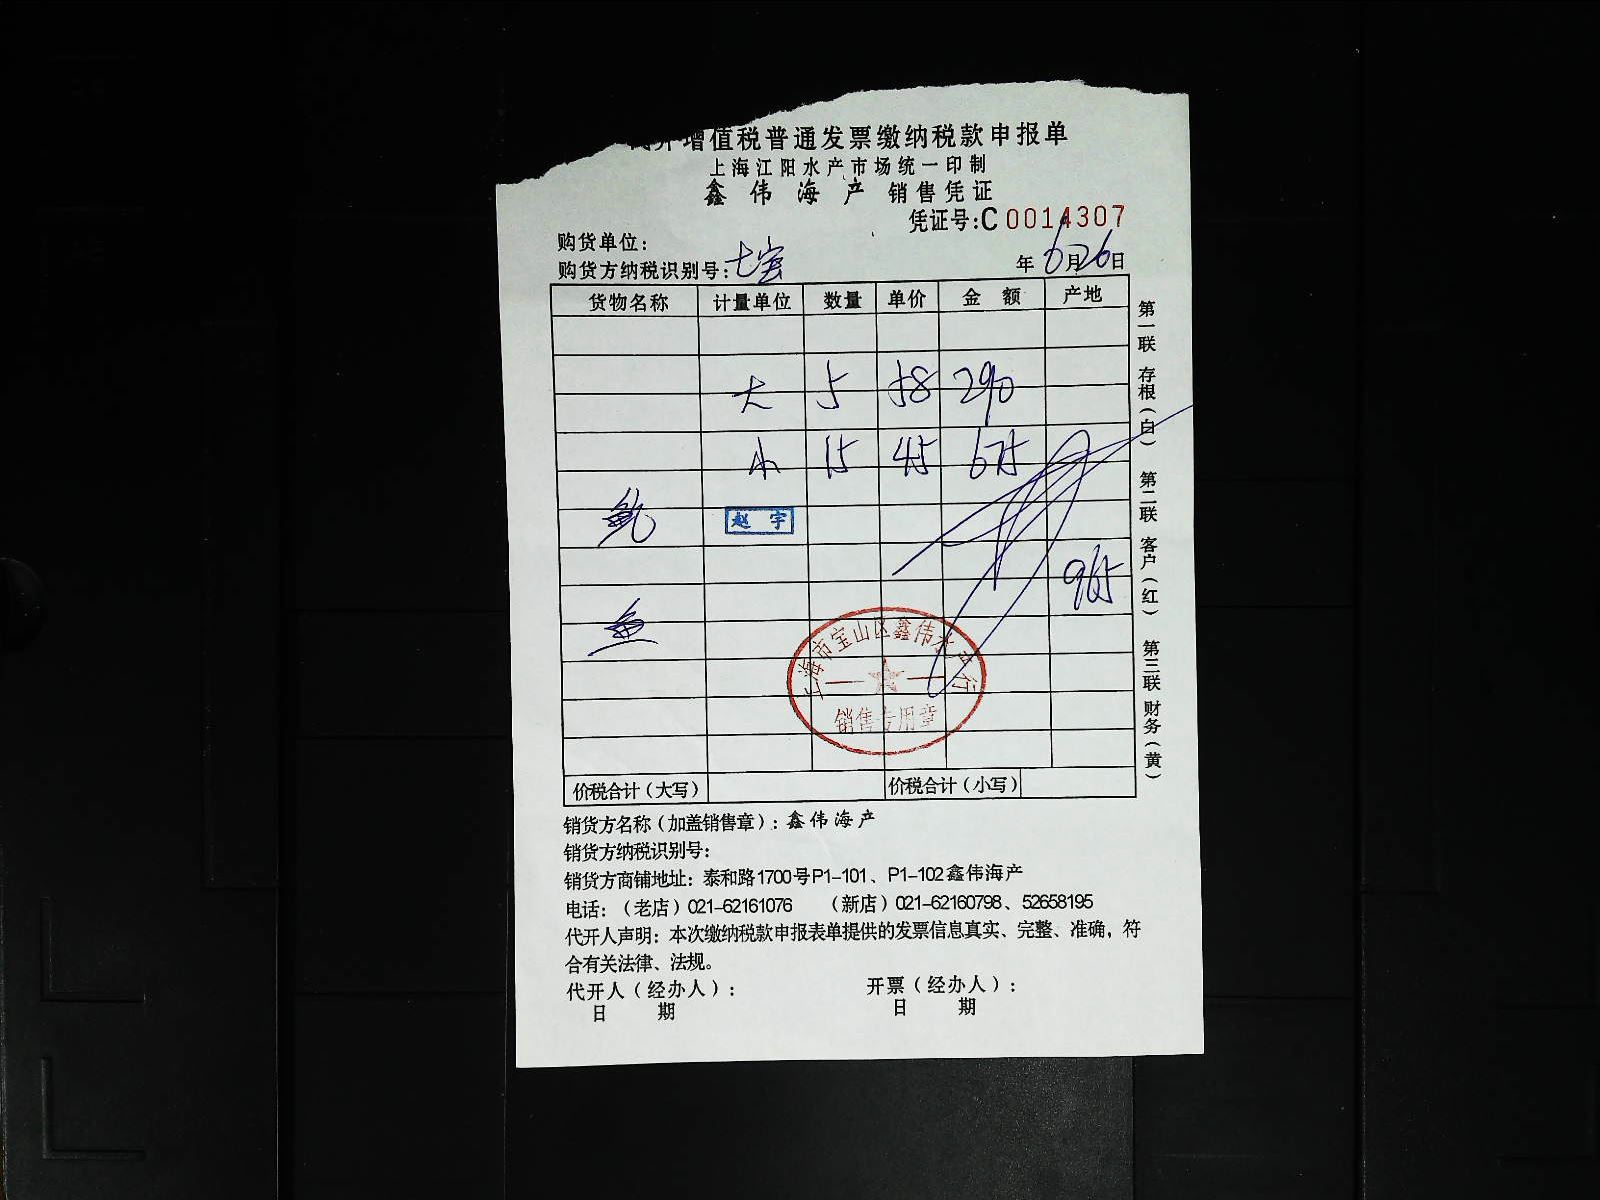 代开增值税普通发票缴纳税款申报单
上海江阳水产市场统一印制
鑫伟海产 销售凭证
凭证号:C 0014307
购货单位:
购货方纳税识别号: 七宝 年 6月26日
货物名称 计量单位 数量 单价 金额 产地
大 5 58 290
小 15 45 675
鱿 赵宇
965
鱼
上海市宝山区鑫伟水产行
销售专用章
价税合计(大写) 价税合计(小写)
第一联 存根(白) 第二联 客户(红) 第三联 财务(黄)
销货方名称(加盖销售章): 鑫伟海产
销货方纳税识别号:
销货方商铺地址: 泰和路1700号P1-101、P1-102鑫伟海产
电话:(老店)021-62161076 (新店)021-62160798、52658195
代开人声明: 本次缴纳税款申报表单提供的发票信息真实、完整、准确, 符
合有关法律、法规。
代开人(经办人): 开票(经办人):
日 期 日 期